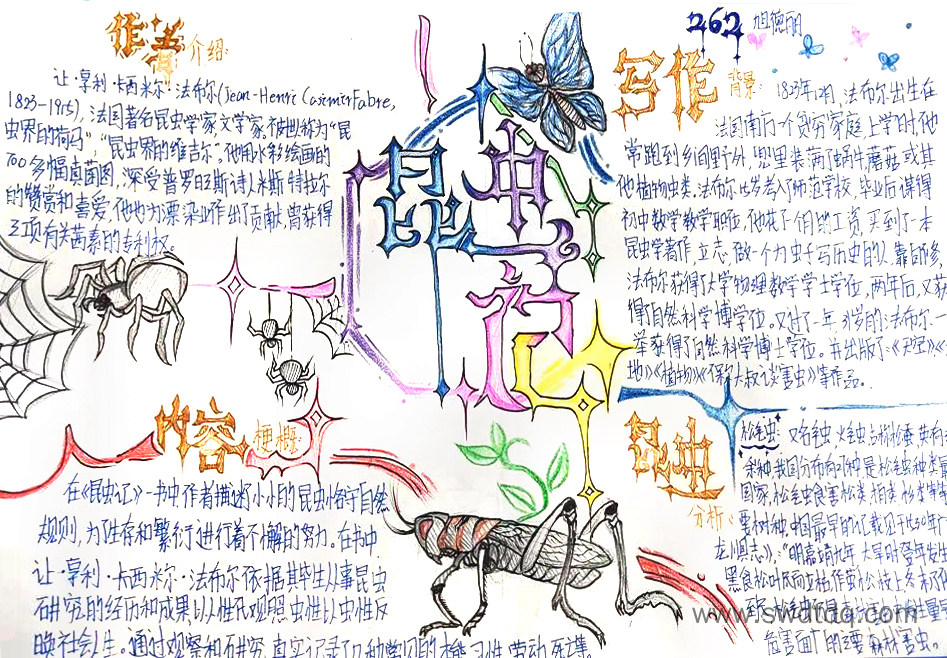 作者介绍:
让·亨利·卡西米尔·法布尔(Jean-Henri Casimir Fabre,
1823-1915),法国著名昆虫学家,文学家,被世人称为“昆
虫界的荷马”,“昆虫界的维吉尔”。他用水彩绘画的
700多幅真菌图,深受普罗旺斯诗人米斯特拉尔
的赞赏和喜爱,他也为漂染业作出了贡献,曾获得
三项有关茜素的专利权。
昆虫记
262 旭德丽
写作背景:
1823年12月,法布尔出生在
法国南方一个贫穷家庭上学时,他
常跑到乡间野外,兜里装满了蜗牛,蘑菇或其
他植物,虫类。法布尔
考入师范学校,毕业后谋得
初中数学教学职位,他花了一个月的工资,买到了一本
昆虫学著作,立志,做一个为虫子写历史的人,靠自修,
法布尔获得了大学物理数学学士学位,两年后,又获
得了自然科学博学位。又过了一年,31岁的法布尔一
举获得了自然科学博士学位。并出版了《天空》《
地》《植物》《保尔大叔谈害虫》等作品。
内容梗概:
在《昆虫记》一书中,作者描述了小小的昆虫恪守自然
规则,为了生存和繁衍进行着不懈的努力。在书中
让·亨利·卡西米尔·法布尔依据其毕生从事昆虫
研究的经历和成果,以人性化观照虫性,以虫性反
映社会人生。通过观察和研究,真实记录了几种常见的本能,习性,劳动,死亡
昆虫分析:
松毛虫:又名毛虫,火毛虫,古称松蚕。
种,我国分布有
种,是松毛虫种类最
国家,松毛虫食害松类,柏类,杉类等
要树种,中国最早的记载见于1530年
龙川县志》:“明嘉靖九年,大旱
www.swdtdq.com
危害面广的主要森林害虫。